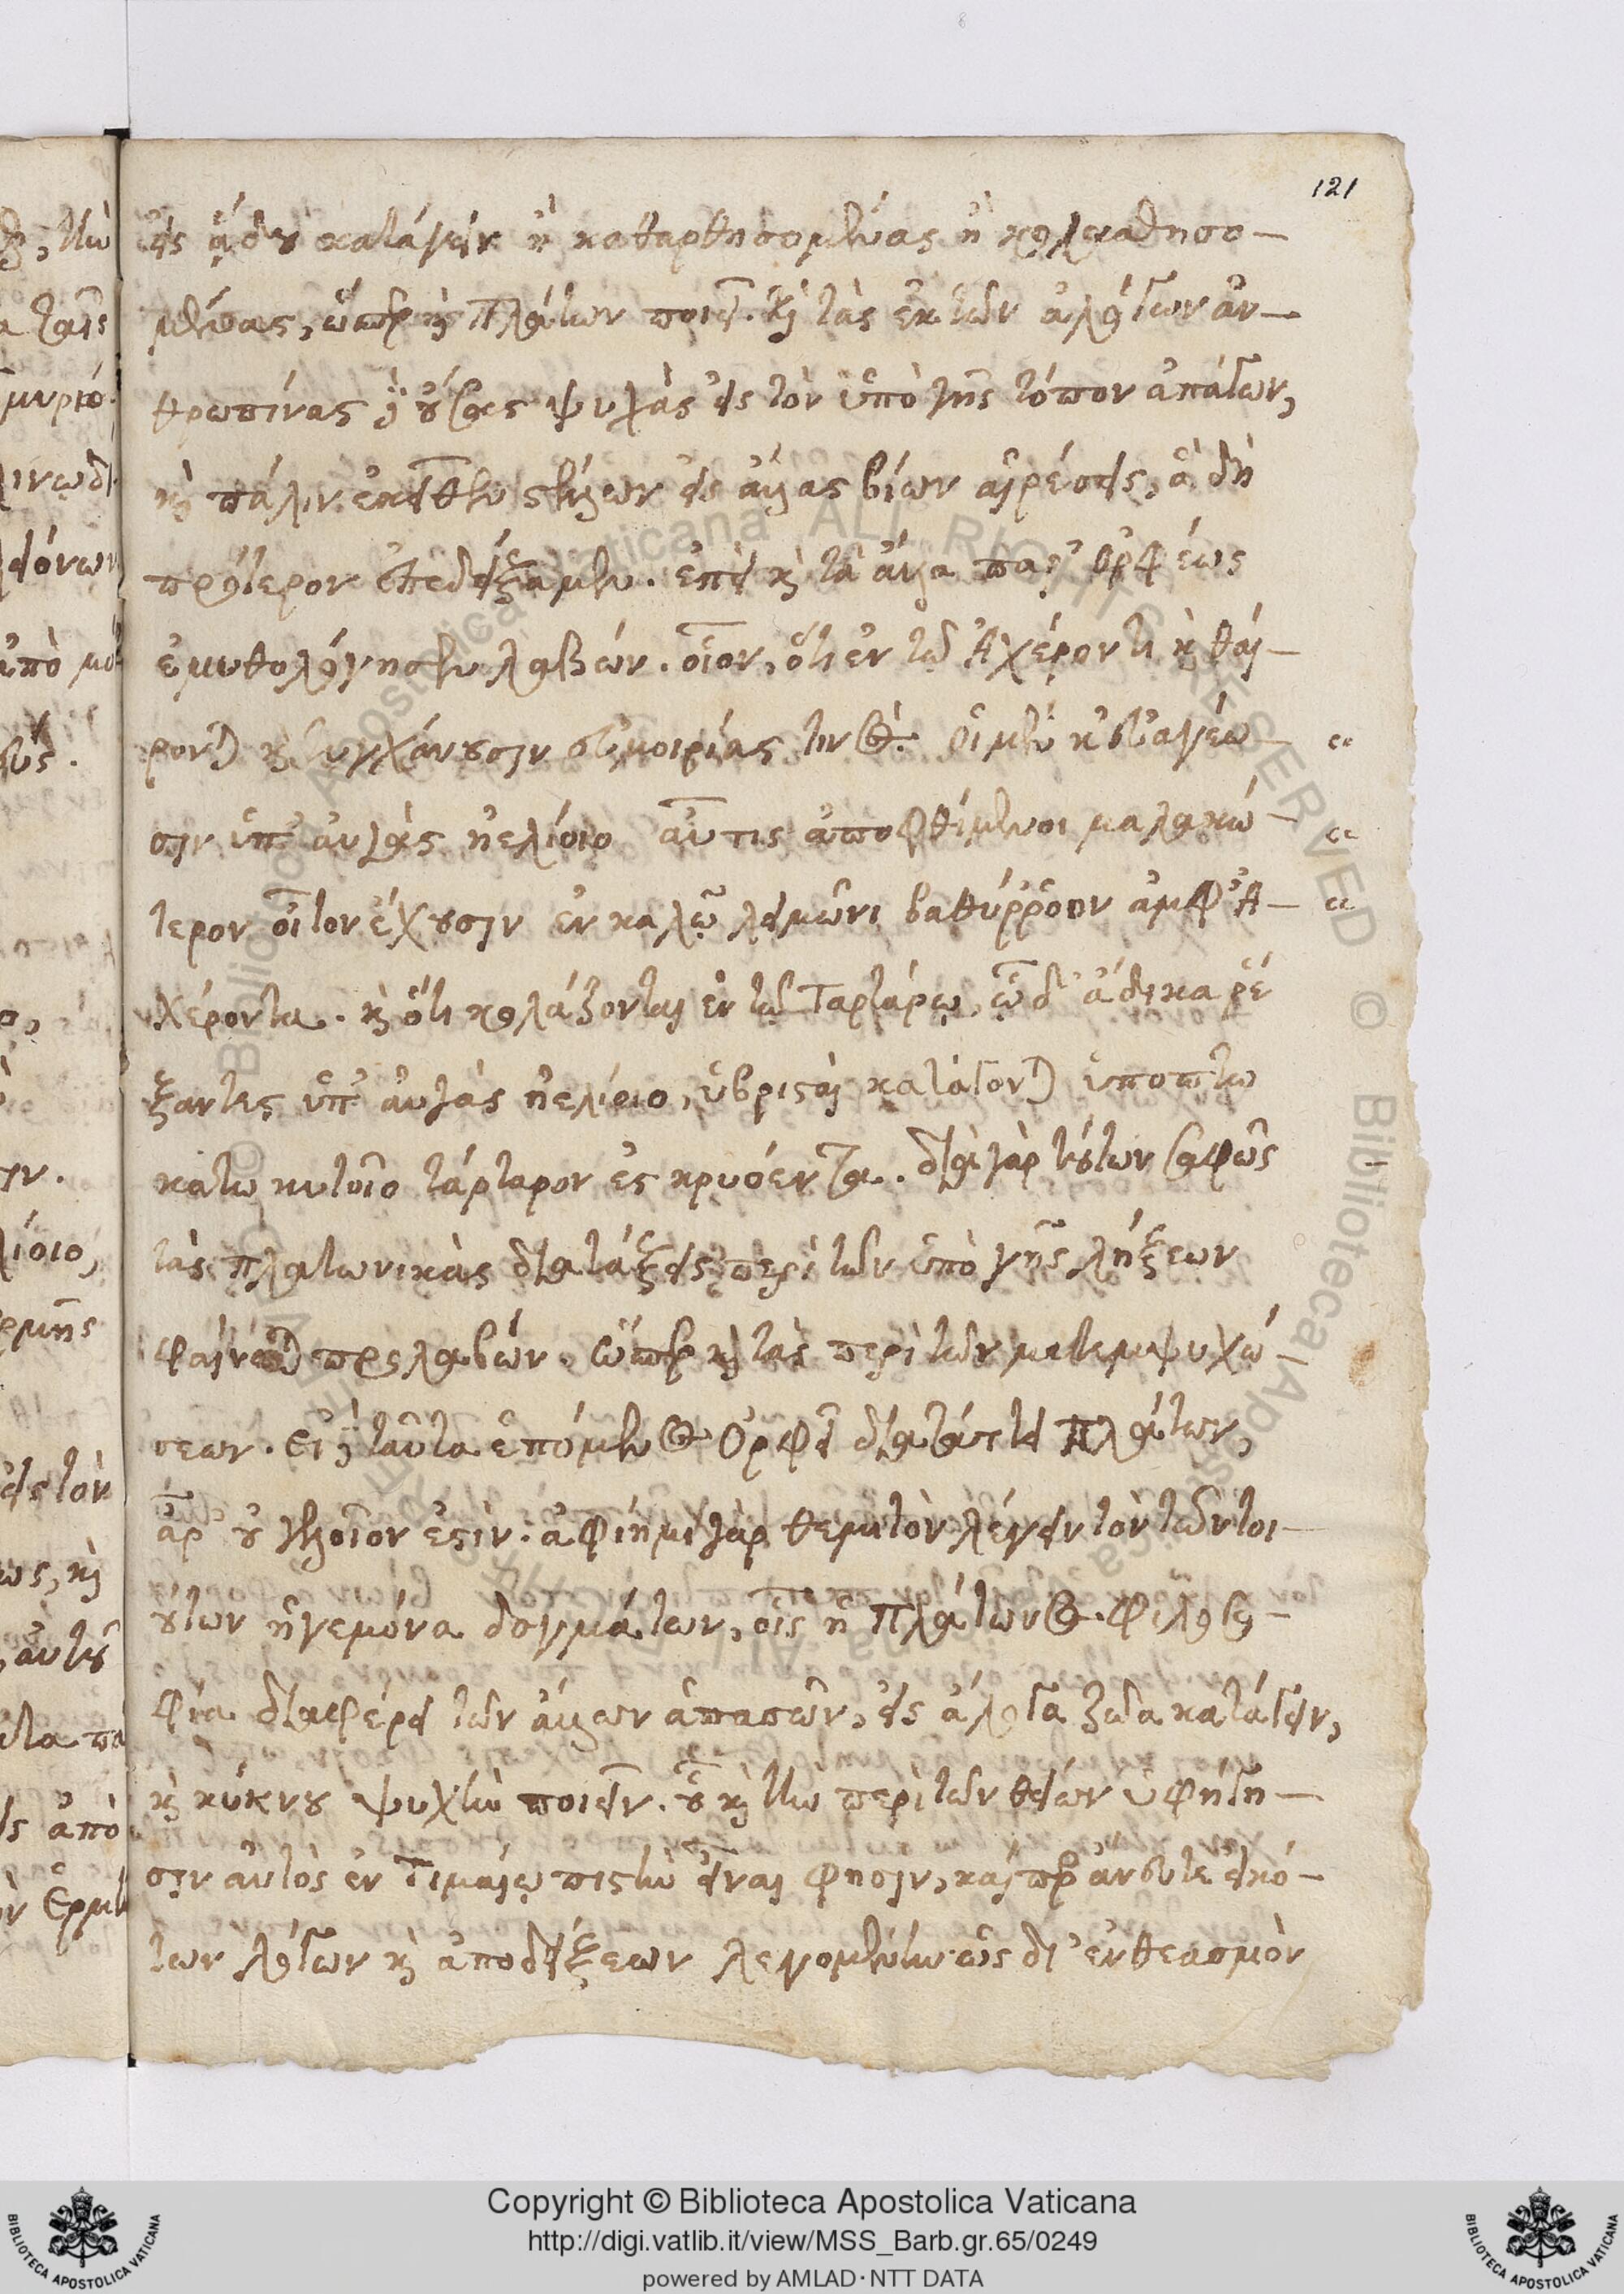 121
εἰς ᾅδου κατάγειν ἢ καθαρθησομένας ἢ κολασθησο–
μένας, ὥσπερ καὶ Πλάτων ποιεῖ. καὶ τὰς ἐκ τῶν ἀλόγων ἀν–
θρωπίνας δὲ οὔσας ψυχὰς εἰς τὸν ὑπὸ γῆς τόπον ἀπάγων,
καὶ πάλιν ἐκεῖθεν στέλλων εἰς ἄλλας βίων αἱρέσεις, ἃ δὴ
πρότερον ἐπεδείξαμεν. ἐπεὶ καὶ τὰ ἄλλα παρ' Ὀρφέως
ἐμυθολόγησεν λαβών. οἷον, ὅτι ἐν τῷ Ἀχέροντι καθαί–
ρονται καὶ τυγχάνουσιν εὐμοιρίας τινός. οἱ μέν κ' εὐαγέω– “
σιν ὑπ' αὐγὰς ἠελίοιο αὖτις ἀποφθίμενοι μαλακώ– “
τερον οἶτον ἔχουσιν ἐν καλῷ λειμῶνι βαθύρροον ἀμφ' Ἀ– “
χέροντα. καὶ ὅτι κολάζονται ἐν τῷ Ταρτάρῳ, ᾧ δ' ἄδικα ῥέ
ξαντες ὑπ' αὐγὰς ἠελίοιο, ὑβρισταὶ κατάγονται ὑπο
κατω κυτοῖο τάρταρον ἐς κρυόεντα. διὰ γὰρ τούτων σαφῶς
τὰς πλατωνικὰς διατάξεις περὶ τῶν ὑπὸ γῆς λήξεων
φαίνεται προλαβών. ὥσπερ καὶ τὰς περὶ τῶν μετεμψυχώ–
σεων. εἰ δὲ ταῦτα ἑπόμενος Ὀρφεῖ διατάττει Πλάτων,
ἆρ' οὐ γελοῖον ἐστὶν. ἀφίημι γὰρ θεμιτὸν λέγειν τὸν τῶν τοι–
ούτων ἡγεμόνα δογμάτων, οἷς ἡ Πλάτωνος φιλοσο–
φία διαφέρει τῶν ἄλλων ἁπασῶν, εἰς ἄλογα ζῶα κατάγειν,
καὶ κύκνου ψυχὴν ποιεῖν. οὗ καὶ τὴν περὶ τῶν θείων ὑφήγη–
σιν αὐτὸς ἐν Τιμαίῳ πιστὴν εἶναι φησιν, καίπερ ἄνευ τε εἰκό–
των λόγων καὶ ἀποδείξεων λεγομένην ὡς δι' ἐνθεασμὸν
Copyright © Biblioteca Apostolica Vaticana
http://digi.vatlib.it/view/MSS_Barb.gr.65/0249
powered by AMLAD·NTT DATA